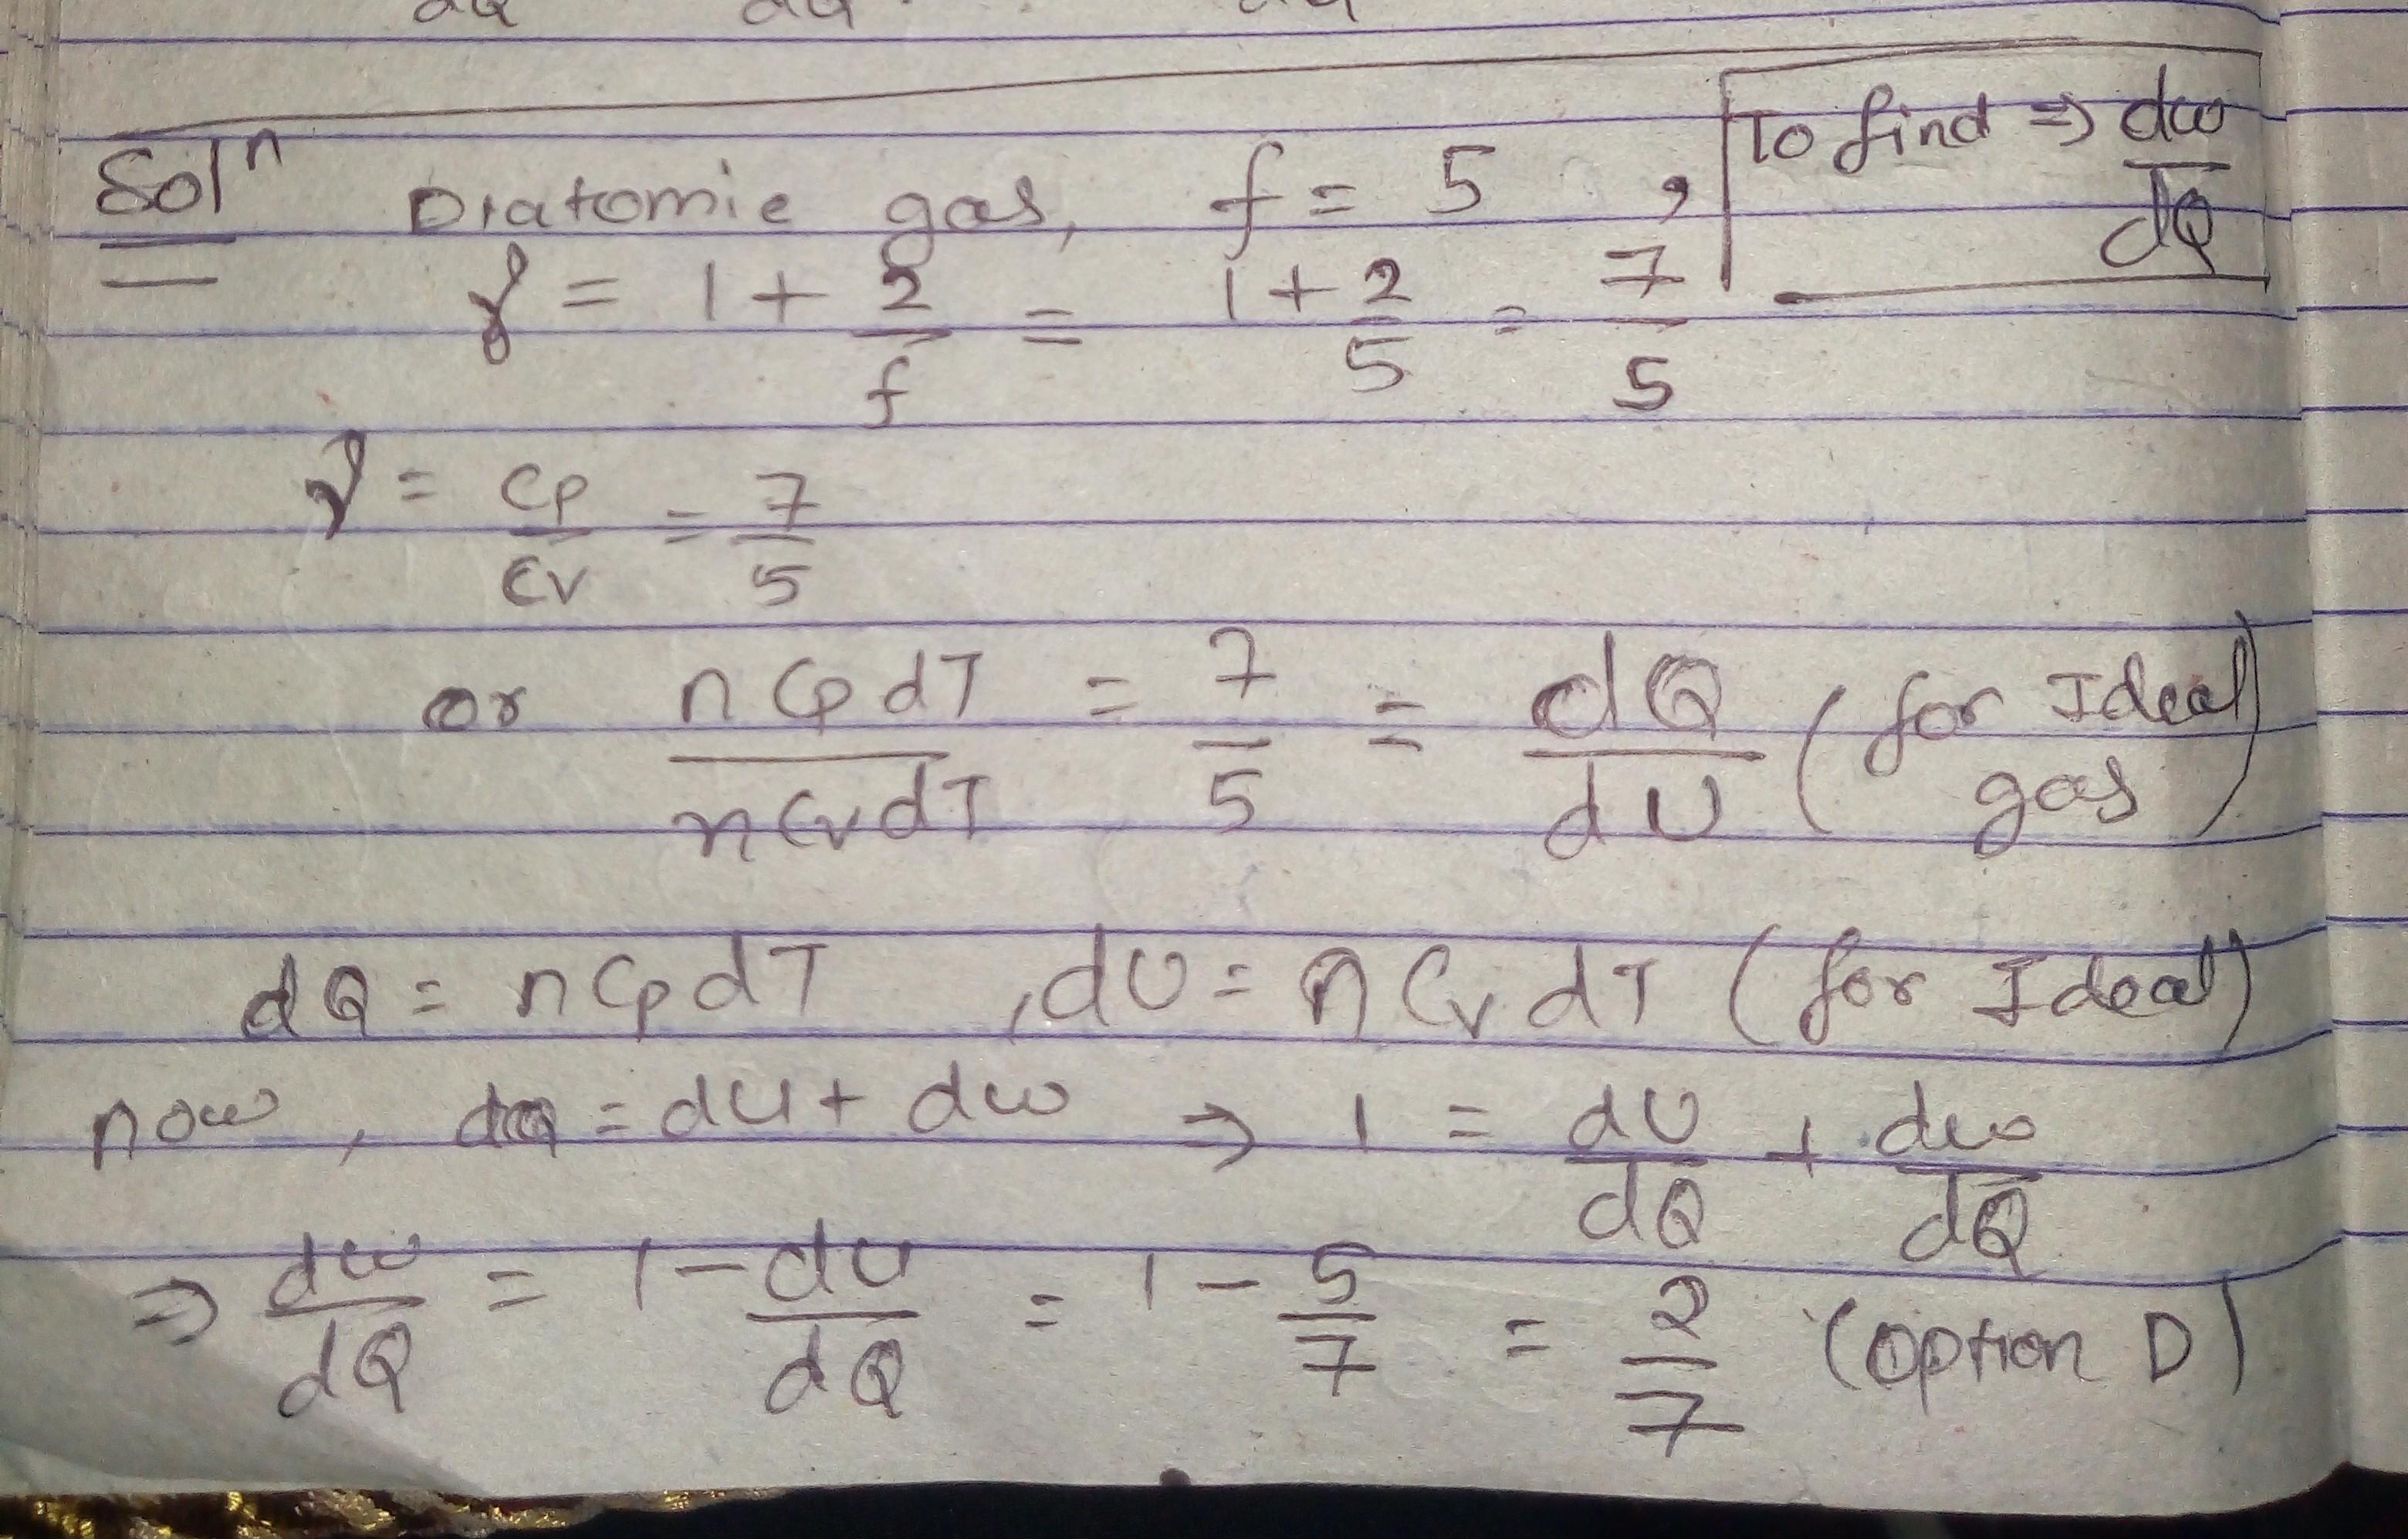 dQ dQ dQ
Solⁿ Diatomic gas, f = 5 ,
To find ⇒ dw/dQ
γ = 1 + 2/f = 1 + 2/5 = 7/5
γ = Cp/Cv = 7/5
or nCpdT/nCvdT = 7/5 = dQ/dU (for Ideal gas)
dQ = nCpdT , dU = nCvdT (for Ideal)
now, dQ = dU + dw ⇒ 1 = dU/dQ + dw/dQ
⇒ dw/dQ = 1 - dU/dQ = 1 - 5/7 = 2/7 (option D)